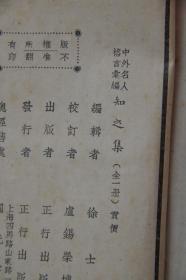 中外名人
格言彙編
知之集(全一册)實價
編輯者 徐士
校訂者 盧錫榮博
出版者 正行出版
發行者 正行出
上海四馬路山東路
總經售處
版權所有
不准翻印